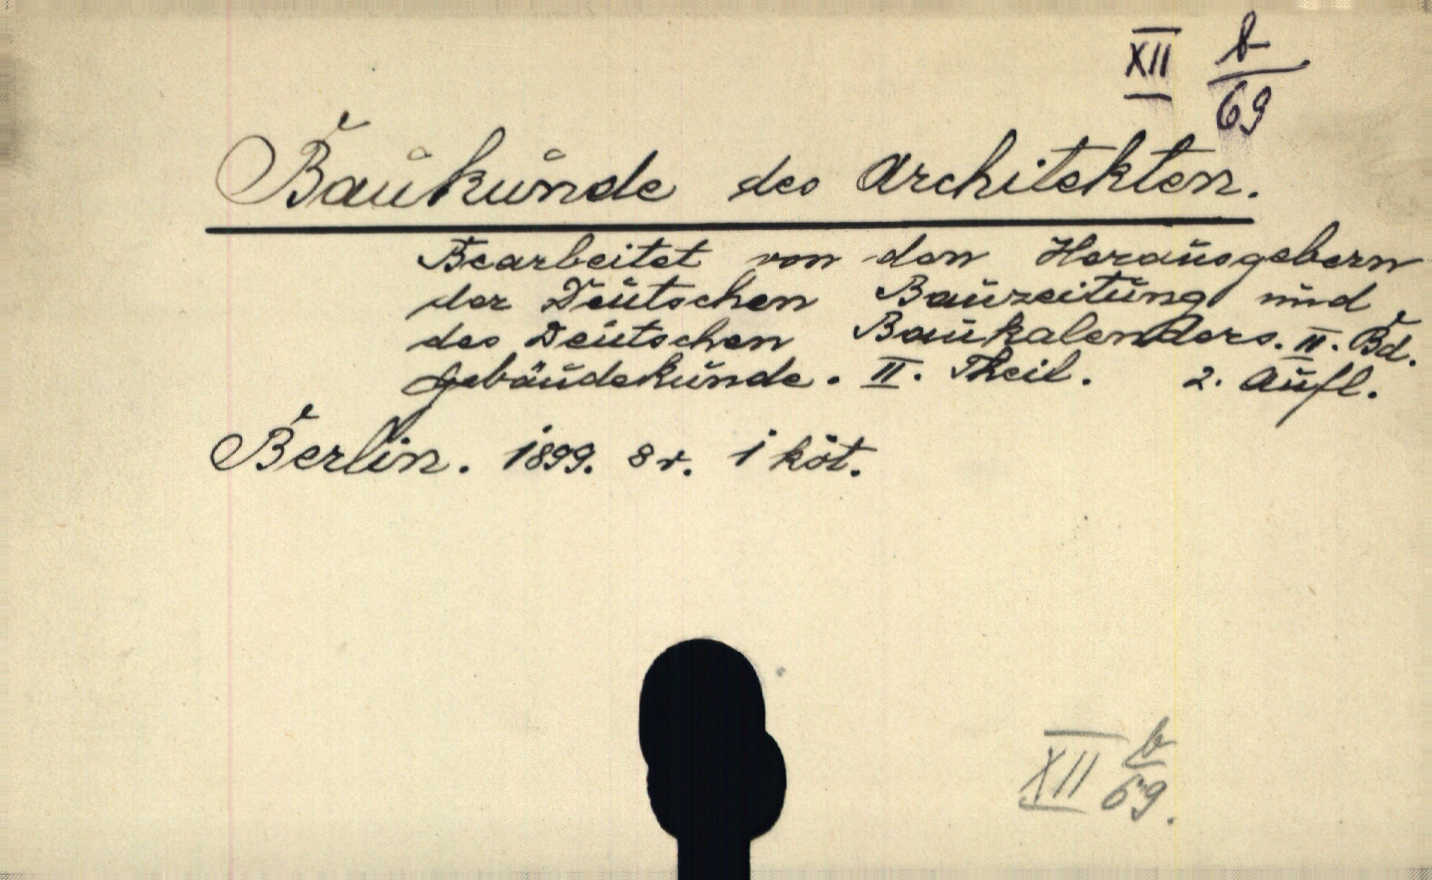 XII b/69
Baukunde des Architekten.
Bearbeitet von den Herausgebern
der Deutschen Bauzeitung und
des Deutschen Baukalenders. II. Bd.
Gebäudekunde. II. Theil. 2. Aufl.
Berlin. 1899. 8r. 1 köt.
XII b/69.